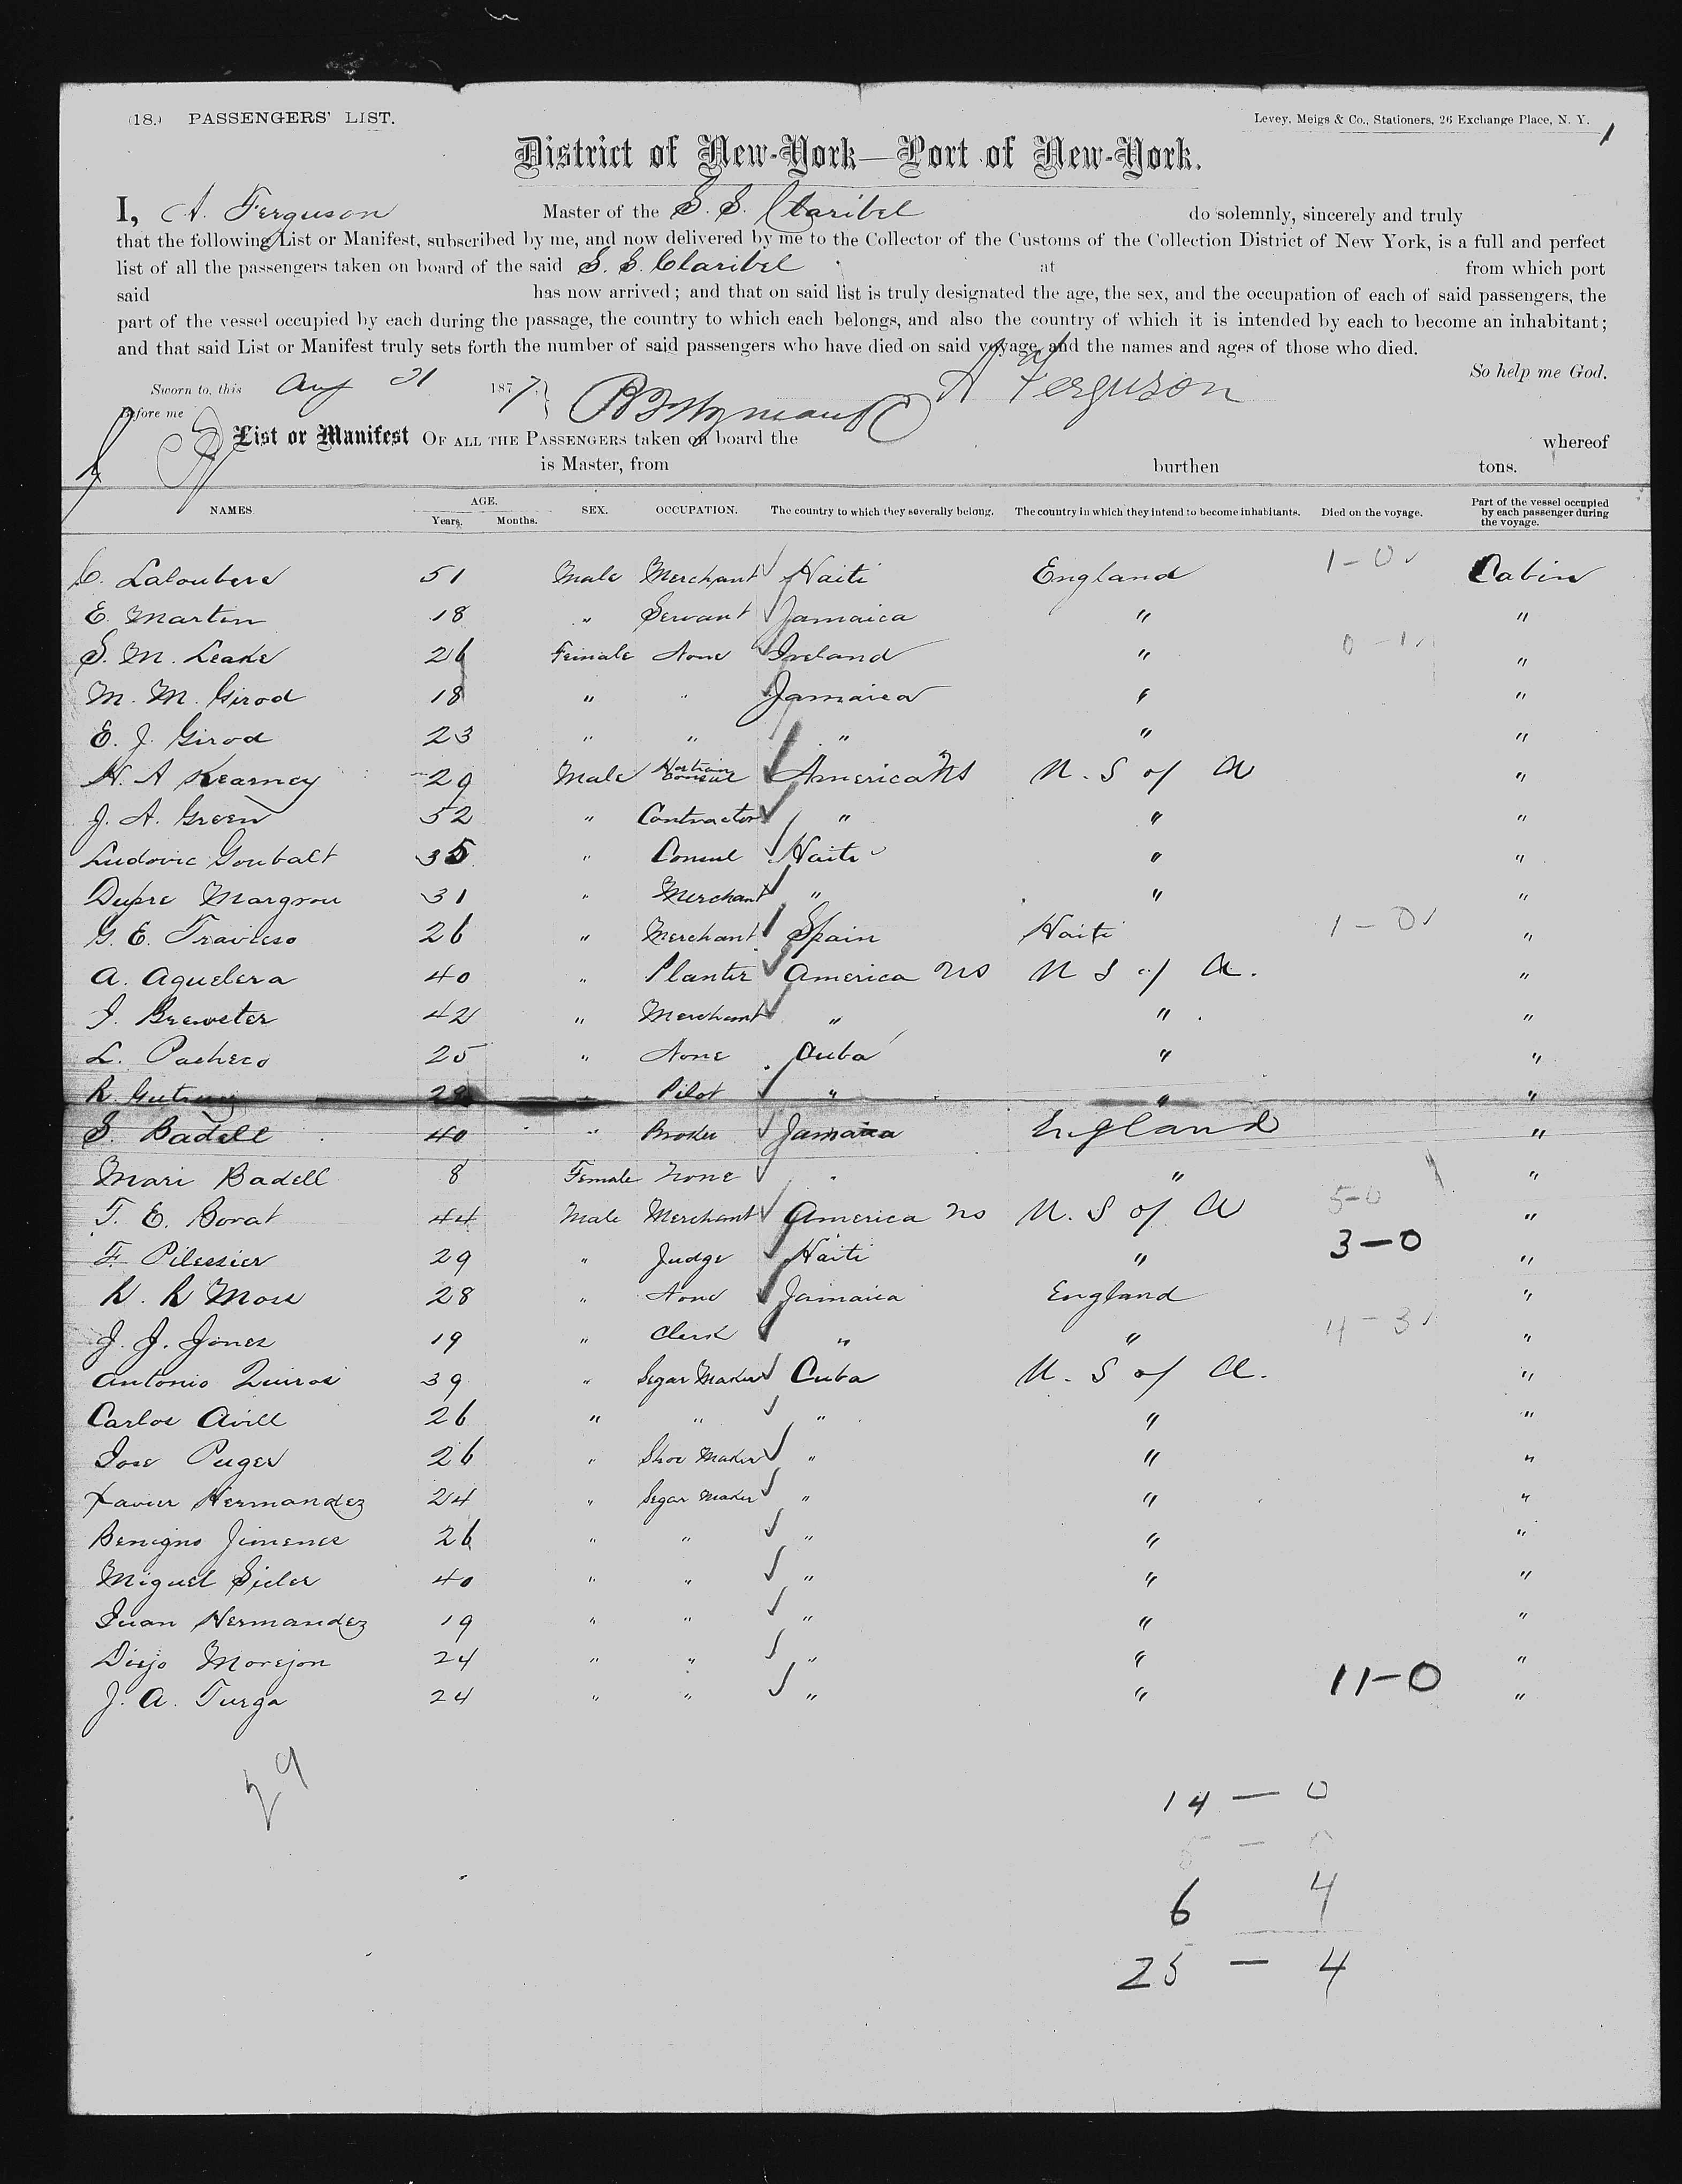 (18.) PASSENGERS' LIST.
Levey, Meigs & Co., Stationers, 26 Exchange Place, N. Y.
1
District of New-York—Port of New-York.
I, A. Ferguson Master of the S. S. Claribel do solemnly, sincerely and truly
that the following List or Manifest, subscribed by me, and now delivered by me to the Collector of the Customs of the Collection District of New York, is a full and perfect
list of all the passengers taken on board of the said S. S. Claribel at from which port
said has now arrived; and that on said list is truly designated the age, the sex, and the occupation of each of said passengers, the
part of the vessel occupied by each during the passage, the country to which each belongs, and also the country of which it is intended by each to become an inhabitant;
and that said List or Manifest truly sets forth the number of said passengers who have died on said voyage, and the names and ages of those who died.
So help me God.
Sworn to, this Aug 21 1877 A Ferguson
Before me
List or Manifest OF ALL THE PASSENGERS taken on board the whereof
is Master, from burthen tons.
NAMES AGE. Years. Months. SEX. OCCUPATION. The country to which they severally belong. The country in which they intend to become inhabitants. Died on the voyage. Part of the vessel occupied by each passenger during the voyage.
C. Laloubere 51 Male Merchant Haiti England 1-0 Cabin
E. Martin 18 " Servant Jamaica " "
S. M. Leake 26 Female None Ireland " 0-1 "
M. M. Girod 18 " " Jamaica " "
E. J. Girod 23 " " " " "
H. A Kearney 29 Male Consul America NS U. S of A "
J. A. Green 52 " Contractor " " "
Ludovic Goubalt 35 " Consul Haiti " "
Dupre Margrou 31 " Merchant " " "
G. E. Travieso 26 " Merchant Spain Haiti 1-0 "
A. Aguelera 40 " Planter America NS U S of A. "
J. Brewster 42 " Merchant " " "
L. Pacheco 25 " None Cuba " "
R. " Pilot " " "
S. Badell 40 " Broker Jamaica England "
Mari Badell 8 Female None " " "
T. E. Borat 44 Male Merchant America NS U. S of A 5-0 "
F. Pilessier 29 " Judge Haiti " 3-0 "
R. R Moss 28 " None Jamaica England "
J. J. Jones 19 " Clerk " " 4-3 "
Antonio Quiros 39 " Segar Maker Cuba U. S of A. "
Carlos Avill 26 " " " " "
Jose Puges 26 " Shoe Maker " " "
Xavier Hermandez 24 " Segar Maker " " "
Benigno Jimenes 26 " " " " "
Miguel Sieler 40 " " " " "
Juan Hermandez 19 " " " " "
Diejo Morejon 24 " " " " "
J. A. Turga 24 " " " " 11-0 "
29
14 — 0
5 — 0
6 4
25 — 4